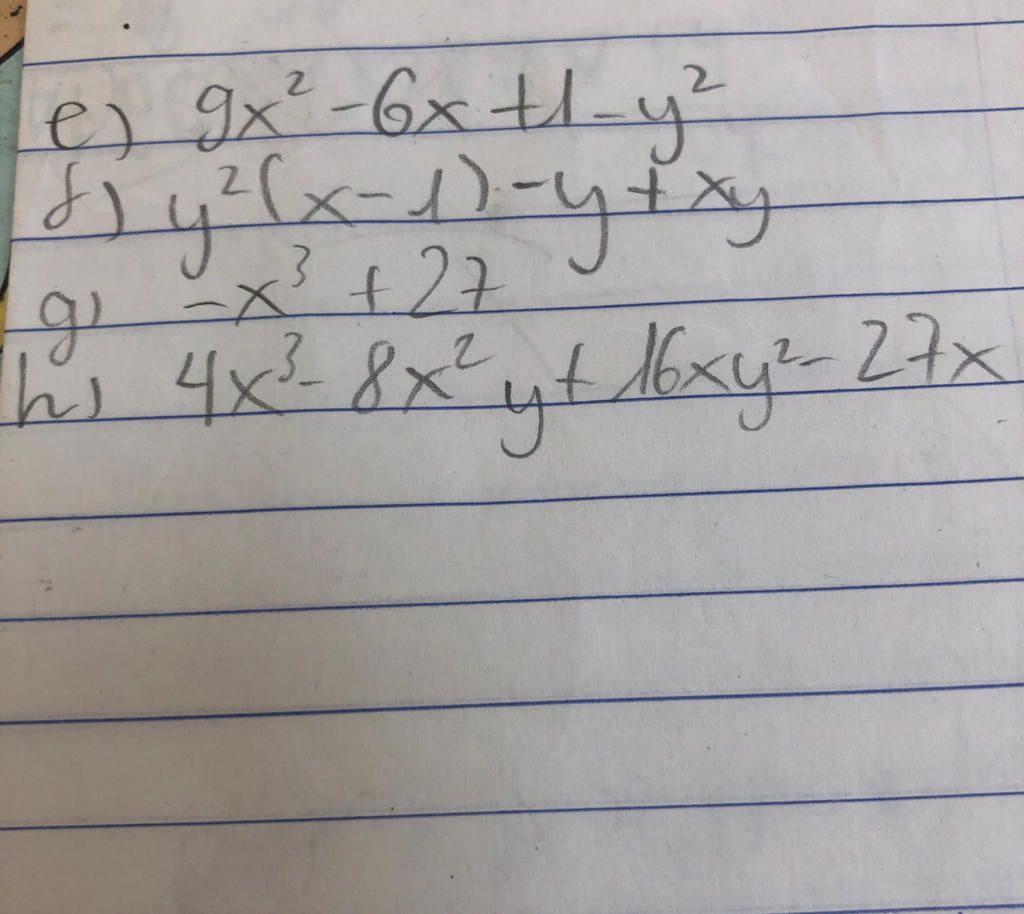 e) 9x² - 6x + 1 - y²
f) y²(x - 1) - y + xy
g) -x³ + 27
h) 4x³ - 8x²y + 16xy² - 27x